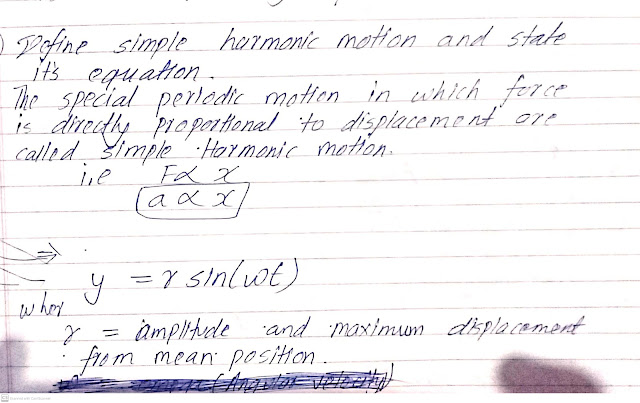 ) Define simple harmonic motion and state
it's equation.
The special periodic motion in which force
is directly proportional to displacement are
called simple Harmonic motion.
i,e F ∝ x
a ∝ x
⇒
y = r sin(ωt)
wher
r = amplitude and maximum displacement
from mean position.
(Angular velocity)